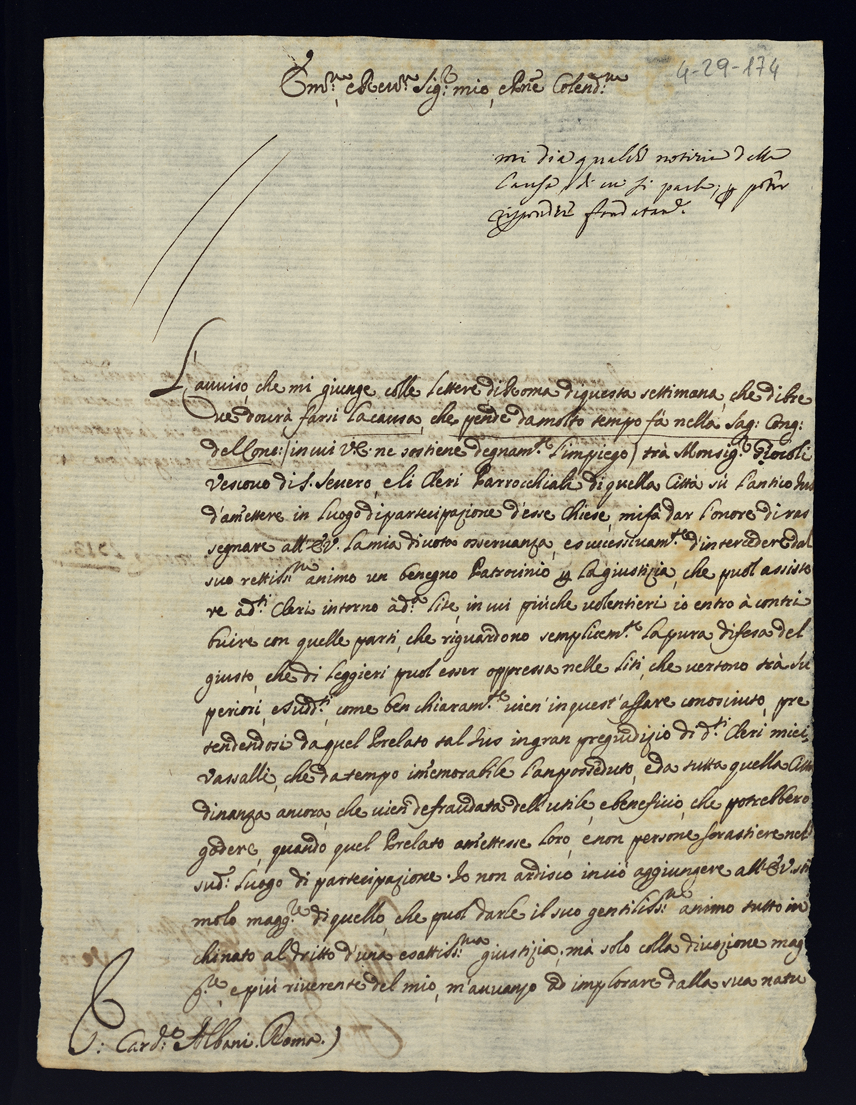 4-29-174
Em.mo e Rev.mo Sig.r mio, e Prne Colend.mo
mi dia qualche notizia della
Causa, di cui si parla, per poter
rispondere fondatam.e
L'avviso, che mi giunge colle lettere di Roma di questa settimana, che di bre
ve dovrà farsi la causa, che pende da molto tempo fà nella Sag: Cong:
del Conc: (in cui V.E. ne sostiene degnam.te l'impiego) trà Monsig.r
Vescovo di S. Severo, e li Cleri Parrocchiali di quella Città sù l'antico Jus
d'amettere in luogo di partecipazione d'esse Chiese, mi fà dar l'onore di ras
segnare all'E.V. la mia divota osservanza, e successivam.te d'intercedere dal
suo rettiss.mo animo un benegno Patrocinio per la giustizia, che puol assiste
re à d.ti Cleri intorno à d.a lite, in cui più che volentieri io entro à contri
buire con quelle parti, che riguardono semplicem.te la pura difesa del
giusto, che di leggieri puol esser oppressa nelle liti, che vertono trà Su
periori, e Sudd.ti, come ben chiaram.te vien' in quest'affare conosciuto, pre
tendendosi da quel Prelato tal Jus in gran pregiudizio di d.ti Cleri miei
vassalli, che da tempo immemorabile l'an posseduto, e da tutta quella Citta
dinanza ancora, che vien defraudata dell'utile, e beneficio, che potrebbero
godere, quando quel Prelato amettesse loro, e non persone forastiere nel
sud.o luogo di partecipazione. Io non ardisco in ciò aggiungere all'E.V. sti
molo magg.re di quello, che puol darle il suo gentiliss.mo animo tutto in
chinato al dritto d'una esattiss.ma giustizia, mà solo colla divozione mag
g.re, e più riverente del mio, m'avvanzo ad implorare dalla sua natu
S: Card.e Albani. Roma.)